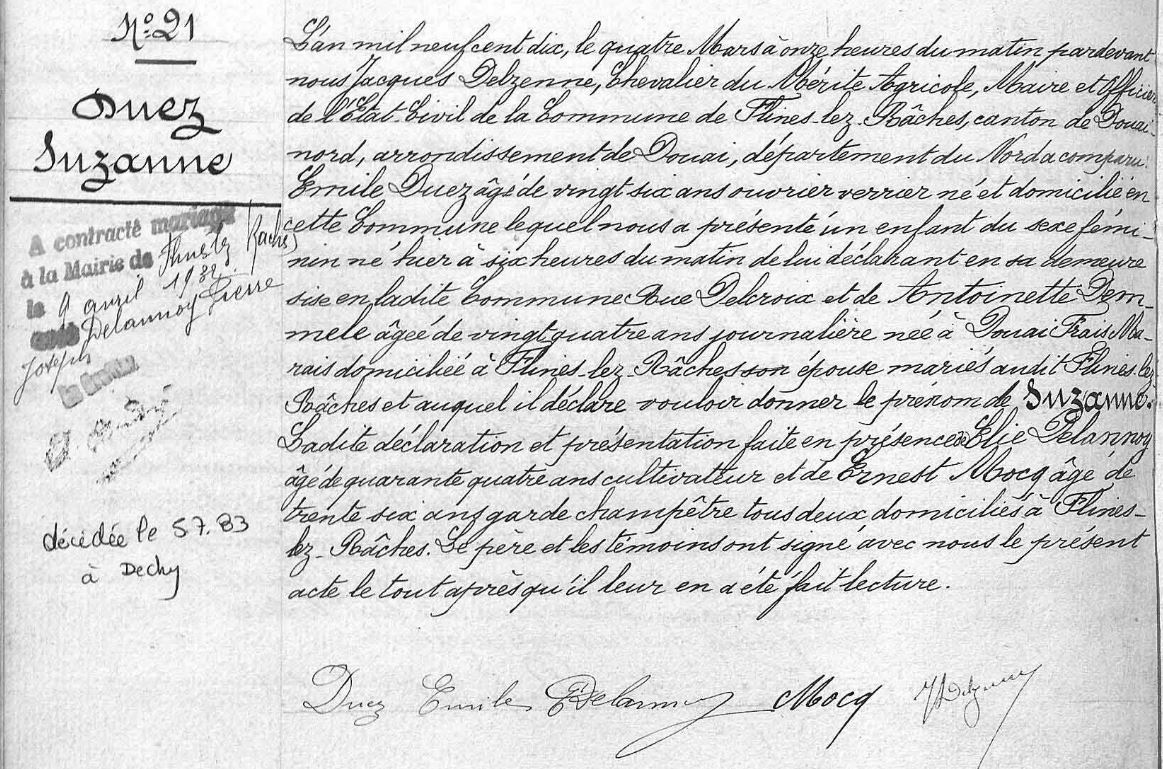 N.º 21
Duez
Suzanne
A contracté mariage
à la Mairie de Flines lez Raches
le 9 avril 1932
avec Delannoy Pierre
Joseph
décédée le 5.7.83
à Dechy
L'an mil neuf cent dix, le quatre Mars à onze heures du matin pardevant
nous Jacques Delzenne, Chevalier du Mérite Agricole, Maire et Officier
de l'Etat-Civil de la Commune de Flines-lez-Râches, canton de Douai-
nord, arrondissement de Douai, département du Nord a comparu:
Emile Duez âgé de vingt six ans ouvrier verrier né et domicilié en
cette Commune lequel nous a présenté un enfant du sexe fémi-
nin né hier à six heures du matin de lui déclarant en sa demeure
sise en ladite Commune Rue Delcroix et de Antoinette Dem-
mele âgée de vingt quatre ans journalière née à Douai Frais Ma-
rais domiciliée à Flines-lez-Râches son épouse mariés audit Flines-lez-
Râches et auquel il déclare vouloir donner le prénom de Suzanne.
Ladite déclaration et présentation faite en présence de Elie Delannoy
âgé de quarante quatre ans cultivateur et de Ernest Mocq âgé de
trente six ans garde champêtre tous deux domiciliés à Flines-
lez-Râches. Le père et les témoins ont signé avec nous le présent
acte le tout après qu'il leur en a été fait lecture.
Duez Emile EDelannoy Mocq JDelzenne